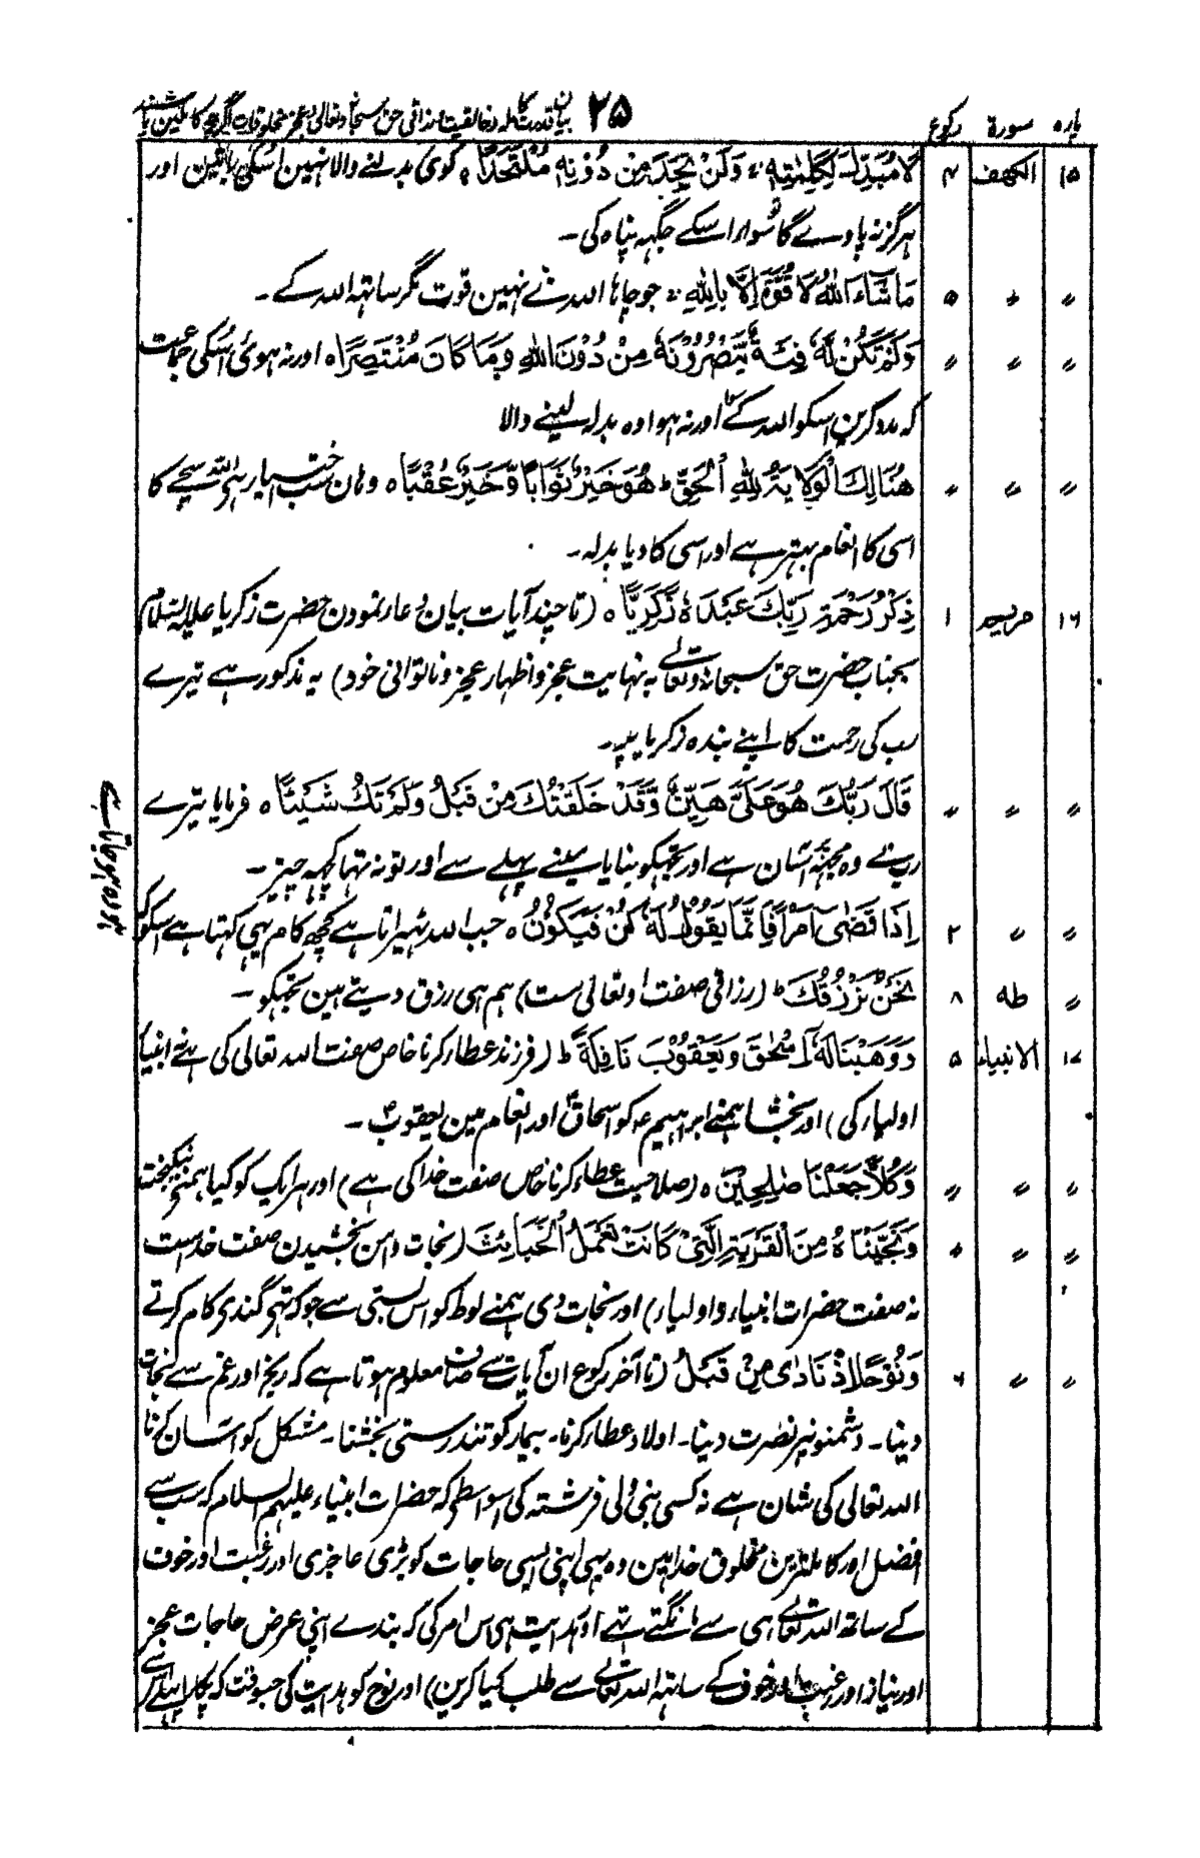 پارہ سورۃ رکوع ۲۵ بیان قدرت کاملہ و خالقیت و رزاقی حق سبحانہ و تعالی و عجز مخلوقات اگرچہ کاملین باشند
۱۵ الکہف ۴ لَا مُبَدِّلَ لِكَلِمٰتِهٖ ۚ وَلَنْ تَجِدَ مِنْ دُوْنِهٖ مُلْتَحَدًا ہ کوی بدلنے والا نہین اسکی باتین اور
ہرگز نہ پاوے گا تو سوا اسکے جگہہ پناہ کی۔
〃 〃 ۵ مَاشَآءَ اللّٰهُ لَا قُوَّةَ اِلَّا بِاللّٰهِ ۚ جو چاہا اللہ نے نہین قوت مگر ساتہہ اللہ کے۔
〃 〃 〃 وَلَمْ تَكُنْ لَّهٗ فِئَةٌ يَّنْصُرُوْنَهٗ مِنْ دُوْنِ اللّٰهِ وَمَا كَانَ مُنْتَصِرًا ہ اور نہ ہوئی اسکی جماعت
کہ مدد کرین اسکو اللہ کے سوا اور نہ ہوا وہ بدلہ لینے والا
〃 〃 〃 هُنَالِكَ الْوَلَايَةُ لِلّٰهِ الْحَقِّ ؕ هُوَ خَيْرٌ ثَوَابًا وَّخَيْرٌ عُقْبًا ہ وہان سب اختیار ہی اللہ سچے کا
اسی کا انعام بہتر ہے اور اسی کا دیا بدلہ۔
۱۶ مریم ۱ ذِكْرُ رَحْمَةِ رَبِّكَ عَبْدَهٗ زَكَرِيَّا ہ (تا چند آیات بیان دعا نمودن حضرت زکریا علیہ السلام
بجناب حضرت حق سبحانہ و تعالے بہ نہایت عجز و اظہار عجز و ناتوانی خود) یہ مذکور ہے تیرے
رب کی رحمت کا اپنے بندہ زکریا پہ۔
〃 〃 〃 قَالَ رَبُّكَ هُوَ عَلَيَّ هَيِّنٌ وَّقَدْ خَلَقْتُكَ مِنْ قَبْلُ وَلَمْ تَكُ شَيْئًا ہ فرمایا تیرے
رب نے وہ مجہہ پر آسان ہے اور تجہکو بنایا مینے پہلے سے اور تو نہ تہا کچہہ چیز۔
〃 〃 ۲ اِذَا قَضٰى اَمْرًا فَاِنَّمَا يَقُوْلُ لَهٗ كُنْ فَيَكُوْنُ ہ جب اللہ ٹہیراتا ہے کچھ کام یہی کہتا ہے اسکو
ہو وہ ہو جاتا ہے
〃 طه ۸ نَحْنُ نَرْزُقُكَ ؕ (رزاقی صفت او تعالی است) ہم ہی رزق دیتے ہین تجہکو۔
۱۷ الانبیاء ۵ وَوَهَبْنَا لَهٗ اِسْحٰقَ وَيَعْقُوْبَ نَافِلَةً ؕ (فرزند عطا کرنا خاص صفت اللہ تعالی کی ہے نہ انبیا
اولیاء کی) اور بخشا ہمنے ابراہیم کو اسحاق اور انعام مین یعقوب۔
〃 〃 〃 وَكُلًّا جَعَلْنَا صٰلِحِيْنَ ہ (صلاحیت عطاء کرنا خاص صفت خدا کی ہے) اور ہر ایک کو کیا ہمنے نیکبخت
〃 〃 〃 وَنَجَّيْنَاهُ مِنَ الْقَرْيَةِ الَّتِيْ كَانَتْ تَعْمَلُ الْخَبَائِثَ (نجات و امن بخشیدن صفت خداست
نہ صفت حضرات انبیاء و اولیاء) اور نجات دی ہمنے لوط کو اس بستی سے جو کہ تہی گندی کام کرتے
〃 〃 ۶ وَنُوْحًا اِذْ نَادٰى مِنْ قَبْلُ (تا آخر رکوع ان آیات سے صاف معلوم ہوتا ہے کہ رنج اور غم سے نجات
دینا۔ دشمنونپر نصرت دینا۔ اولاد عطا کرنا۔ بیمار کو تندرستی بخشنا۔ مشکل کو آسان کرنا
اللہ تعالی کی شان ہے نہ کسی نبی ولی فرشتہ کی اسواسطے کہ حضرات انبیاء علیہم السلام کہ سب سے
افضل اور کاملترین مخلوق خدا ہین وہ بہی اپنی ایسی حاجات کو بڑی عاجزی اور رغبت اور خوف
کے ساتھ اللہ تعالے ہی سے مانگتے تہے اور ہدایت ہی اس امر کی کہ بندے اپنی عرض حاجات عجز
اور نیاز اور رغبت اور خوف کے ساتہہ اللہ تعالے سے طلب کیا کرین) اور نوح کو ہدایت کی جسوقت کہ پکارا